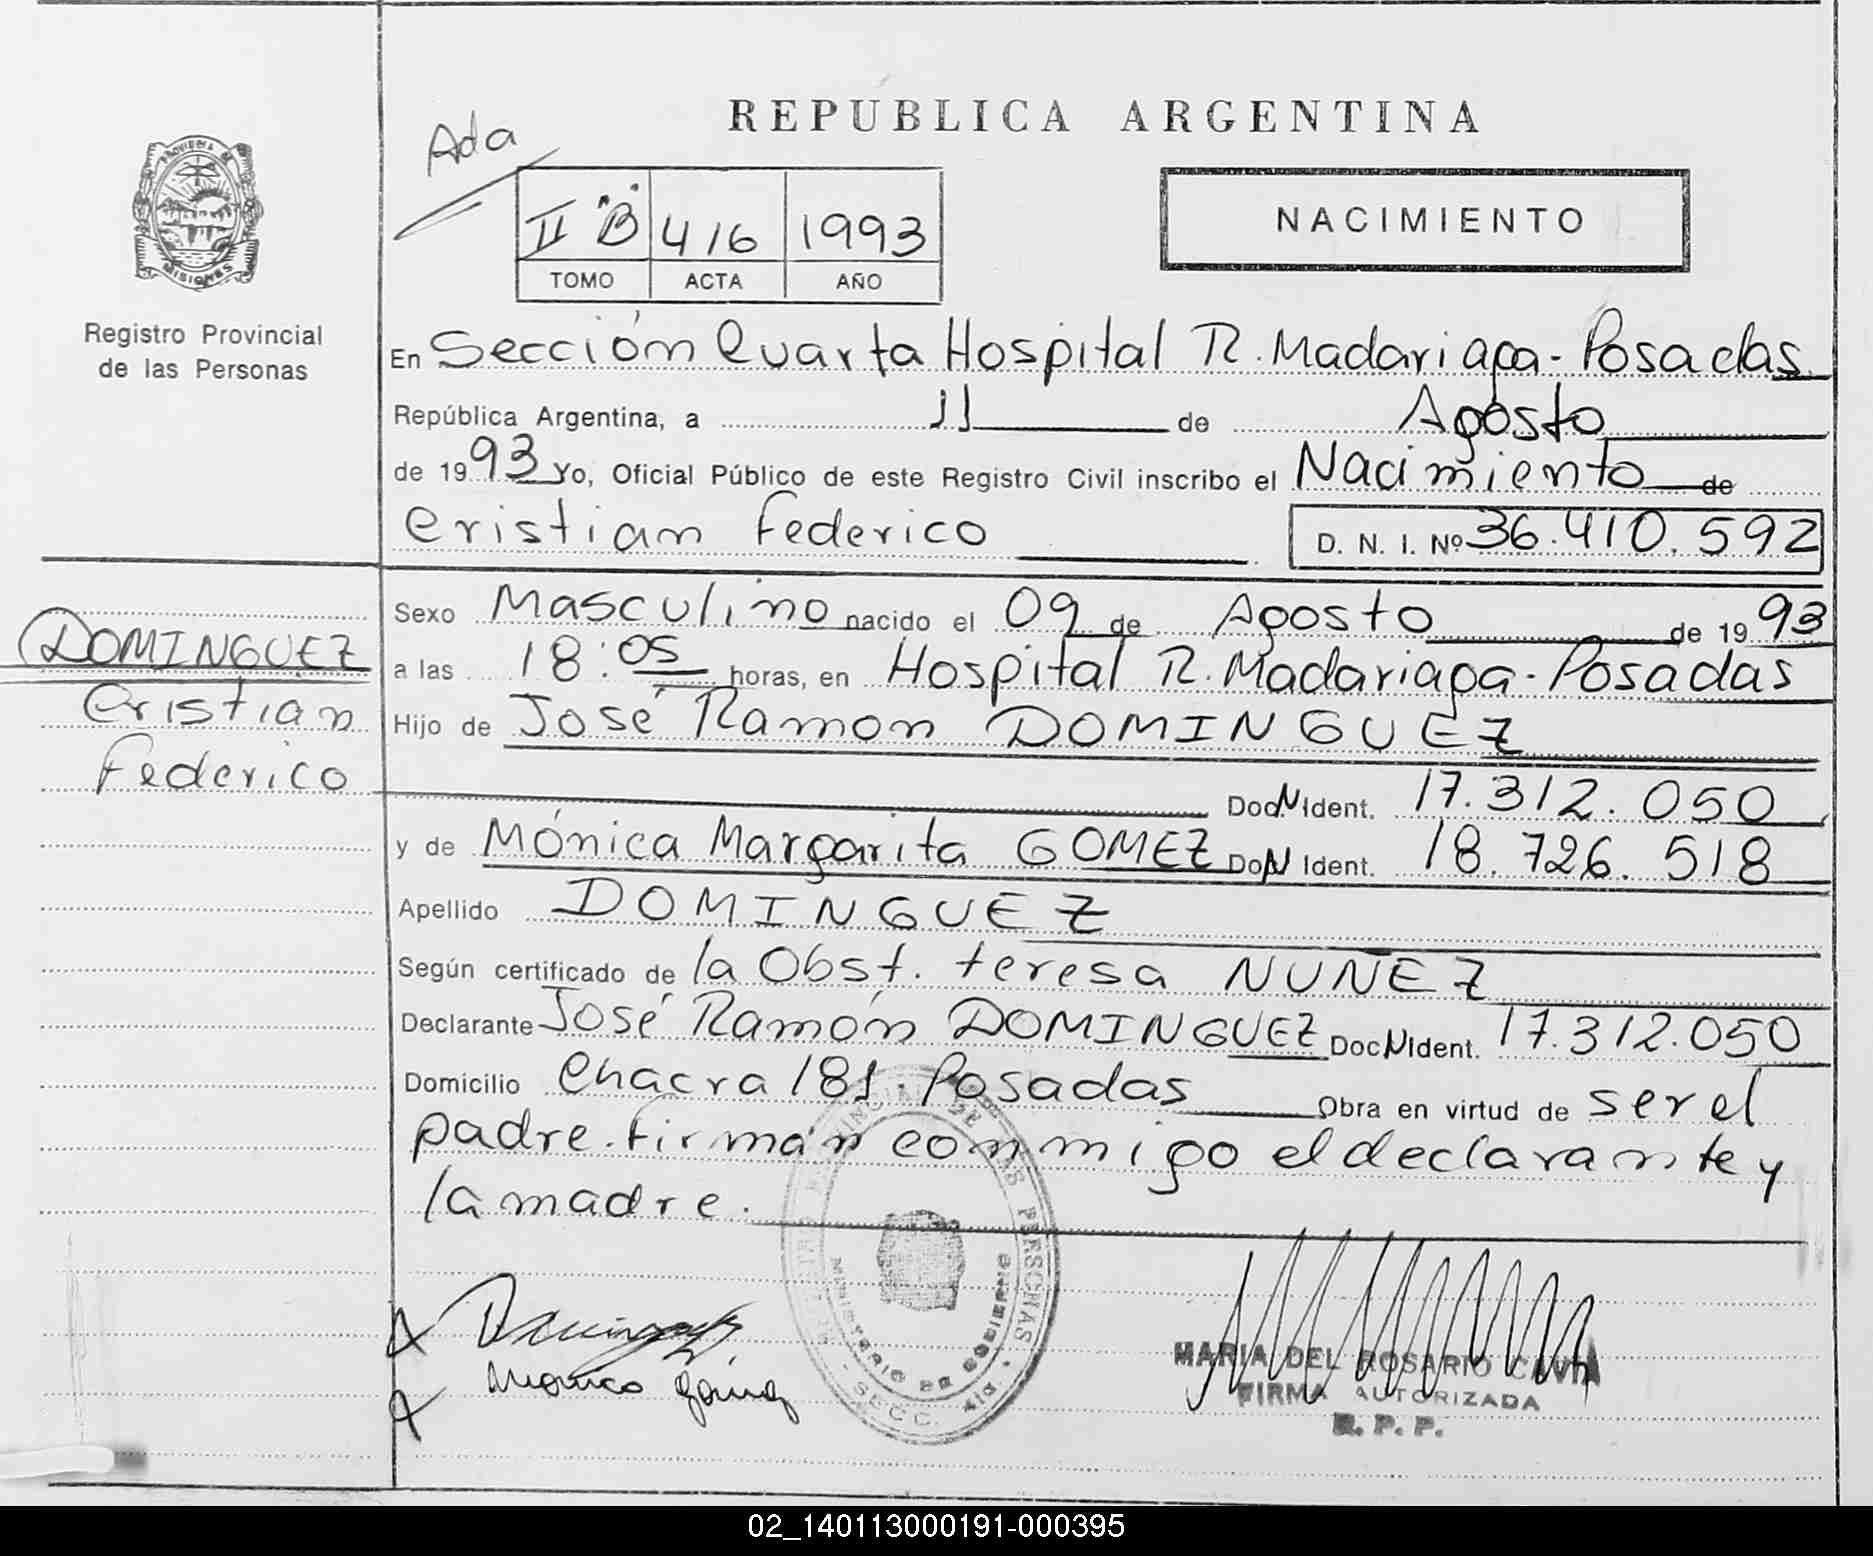 REPUBLICA ARGENTINA
Ada
II "B" 416 1993
TOMO ACTA AÑO
NACIMIENTO
PROVINCIA DE MISIONES
Registro Provincial
de las Personas
En Sección Cuarta Hospital R. Madariaga - Posadas
República Argentina, a 11 de Agosto
de 1993 Yo, Oficial Público de este Registro Civil inscribo el Nacimiento de
Cristian Federico D. N. I. Nº 36.410.592
DOMINGUEZ
Cristian
Federico
Sexo Masculino nacido el 09 de Agosto de 1993
a las 18:05 horas, en Hospital R. Madariaga - Posadas
Hijo de José Ramon DOMINGUEZ
Doc. N Ident. 17.312.050
y de Mónica Margarita GOMEZ Doc N Ident. 18.726.518
Apellido DOMINGUEZ
Según certificado de la Obst. teresa NUÑEZ
Declarante José Ramón DOMINGUEZ Doc N Ident. 17.312.050
Domicilio Chacra 181. Posadas Obra en virtud de ser el
padre. Firman conmigo el declarante y
la madre.
Monica Gomez
PROVINCIAL DE LAS PERSONAS
MINISTERIO DE GOBIERNO
SECC. 4ta.
MARIA DEL ROSARIO
FIRMA AUTORIZADA
R. P. P.
02_140113000191-000395